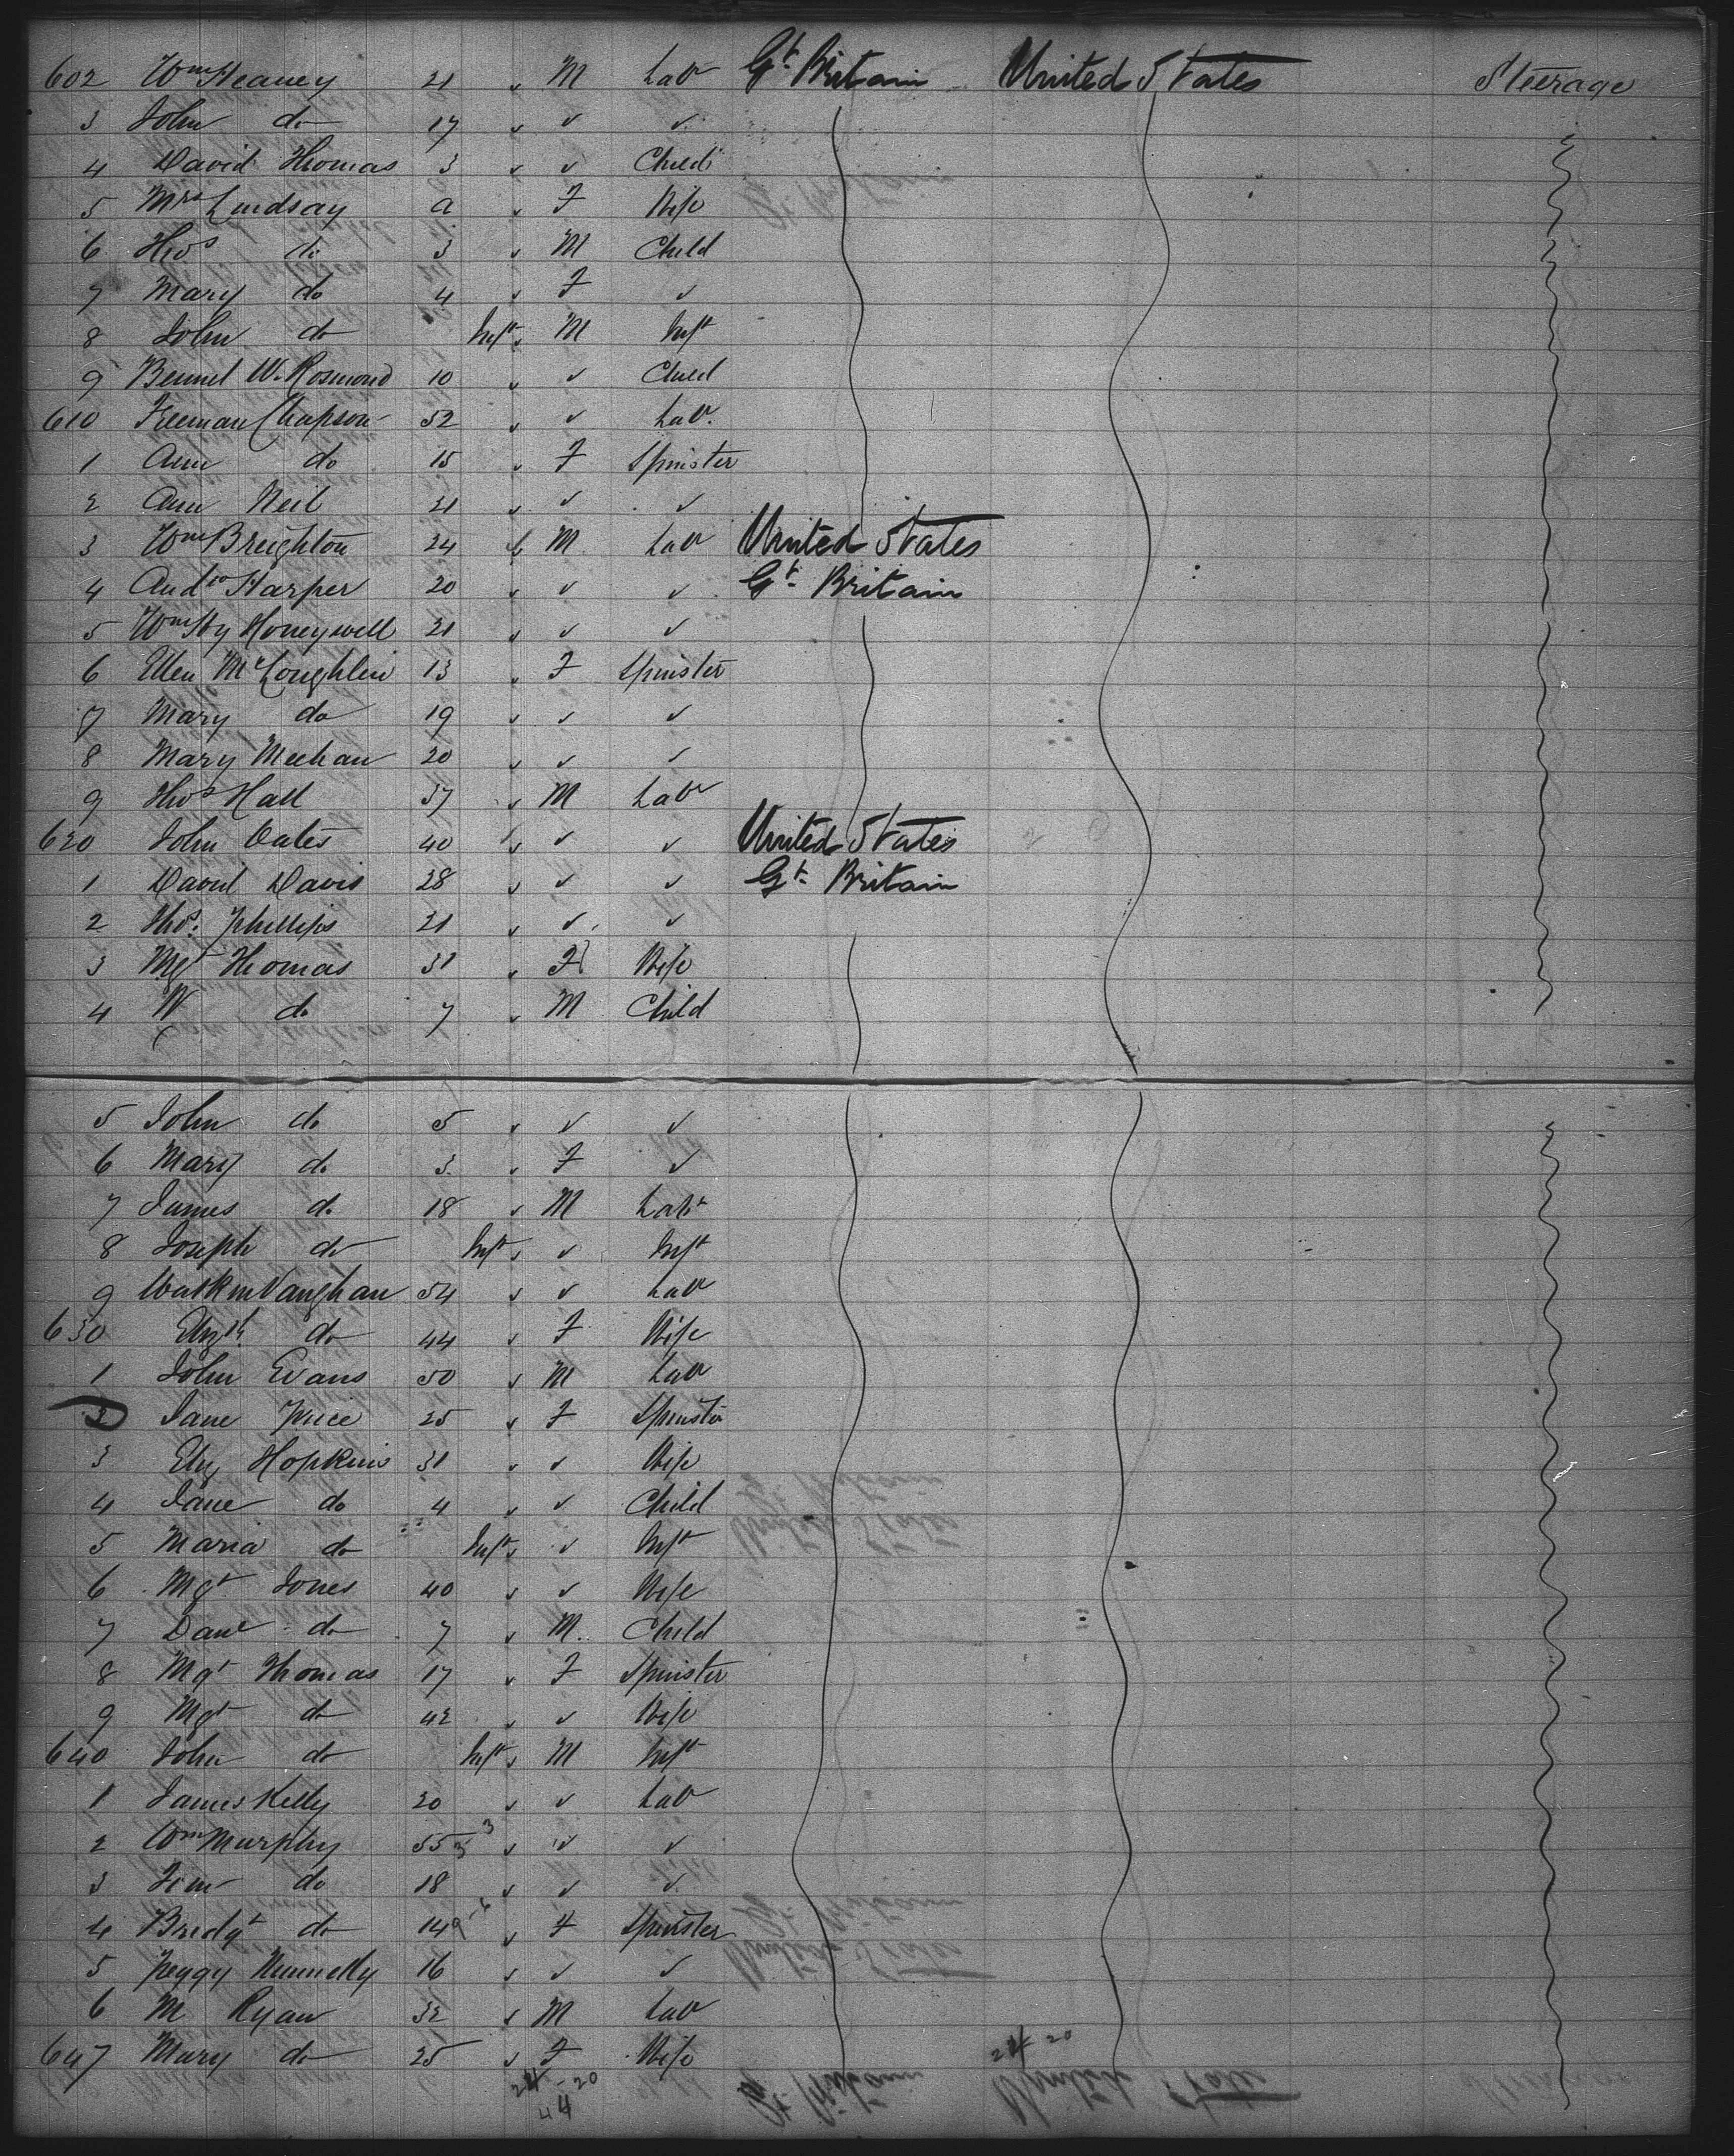 602 Wm Heaney 21 " M Labr Gt Britain United States Steerage
3 John do 17 " " "
4 David Thomas 3 " " Child
5 Mrs Lindsay a " F Wife
6 Thos do 3 " M Child
7 Mary do 4 " F "
8 John do Inft " M Inft
9 W. Rosmond 10 " " Child
610 Freeman Chapson 52 " " Labr.
1 Ann do 15 " F Spinster
2 Ann Neil 21 " " "
3 Wm Breighton 24 M Labr United States
4 Andw Harper 20 " " " Gt Britain
5 Wm Hy Honeywell 21 " " "
6 Ellen McLoughlin 13 " F Spinster
7 Mary do 19 " " "
8 Mary Meehan 20 " " "
9 Thos Hall 37 " M Labr
620 John Oates 40 " " " United States
1 David Davis 28 " " " Gt Britain
2 Thos. Phillips 21 " " "
3 Mgt Thomas 31 " F Wife
4 W do 7 " M Child
5 John do 5 " " "
6 Mary do 3 " F "
7 James do 18 " M Labr
8 Joseph do Inft " " Inft
9 Watkin Vaughan 54 " " Labr
630 Elizth do 44 " F Wife
1 John Evans 50 " M Labr
2 Jane Price 25 " F Spinster
3 Eliz Hopkins 31 " " Wife
4 Jane do 4 " " Child
5 Maria do Inft " " Inft
6 Mgt Jones 40 " " Wife
7 Danl do 7 " M. Child
8 Mgt Thomas 17 " F Spinster
9 Mgt do 42 " " Wife
640 John do Inft " M Inft
1 James Kelly 20 " " Labr
2 Wm Murphy 55 " " "
3 Tim do 18 " " "
4 Bridgt do 14 " F Spinster
5 Peggy Nunnelly 16 " " "
6 M Ryan 32 " M Labr
647 Mary do 25 " F Wife
24 20
24 - 20
44